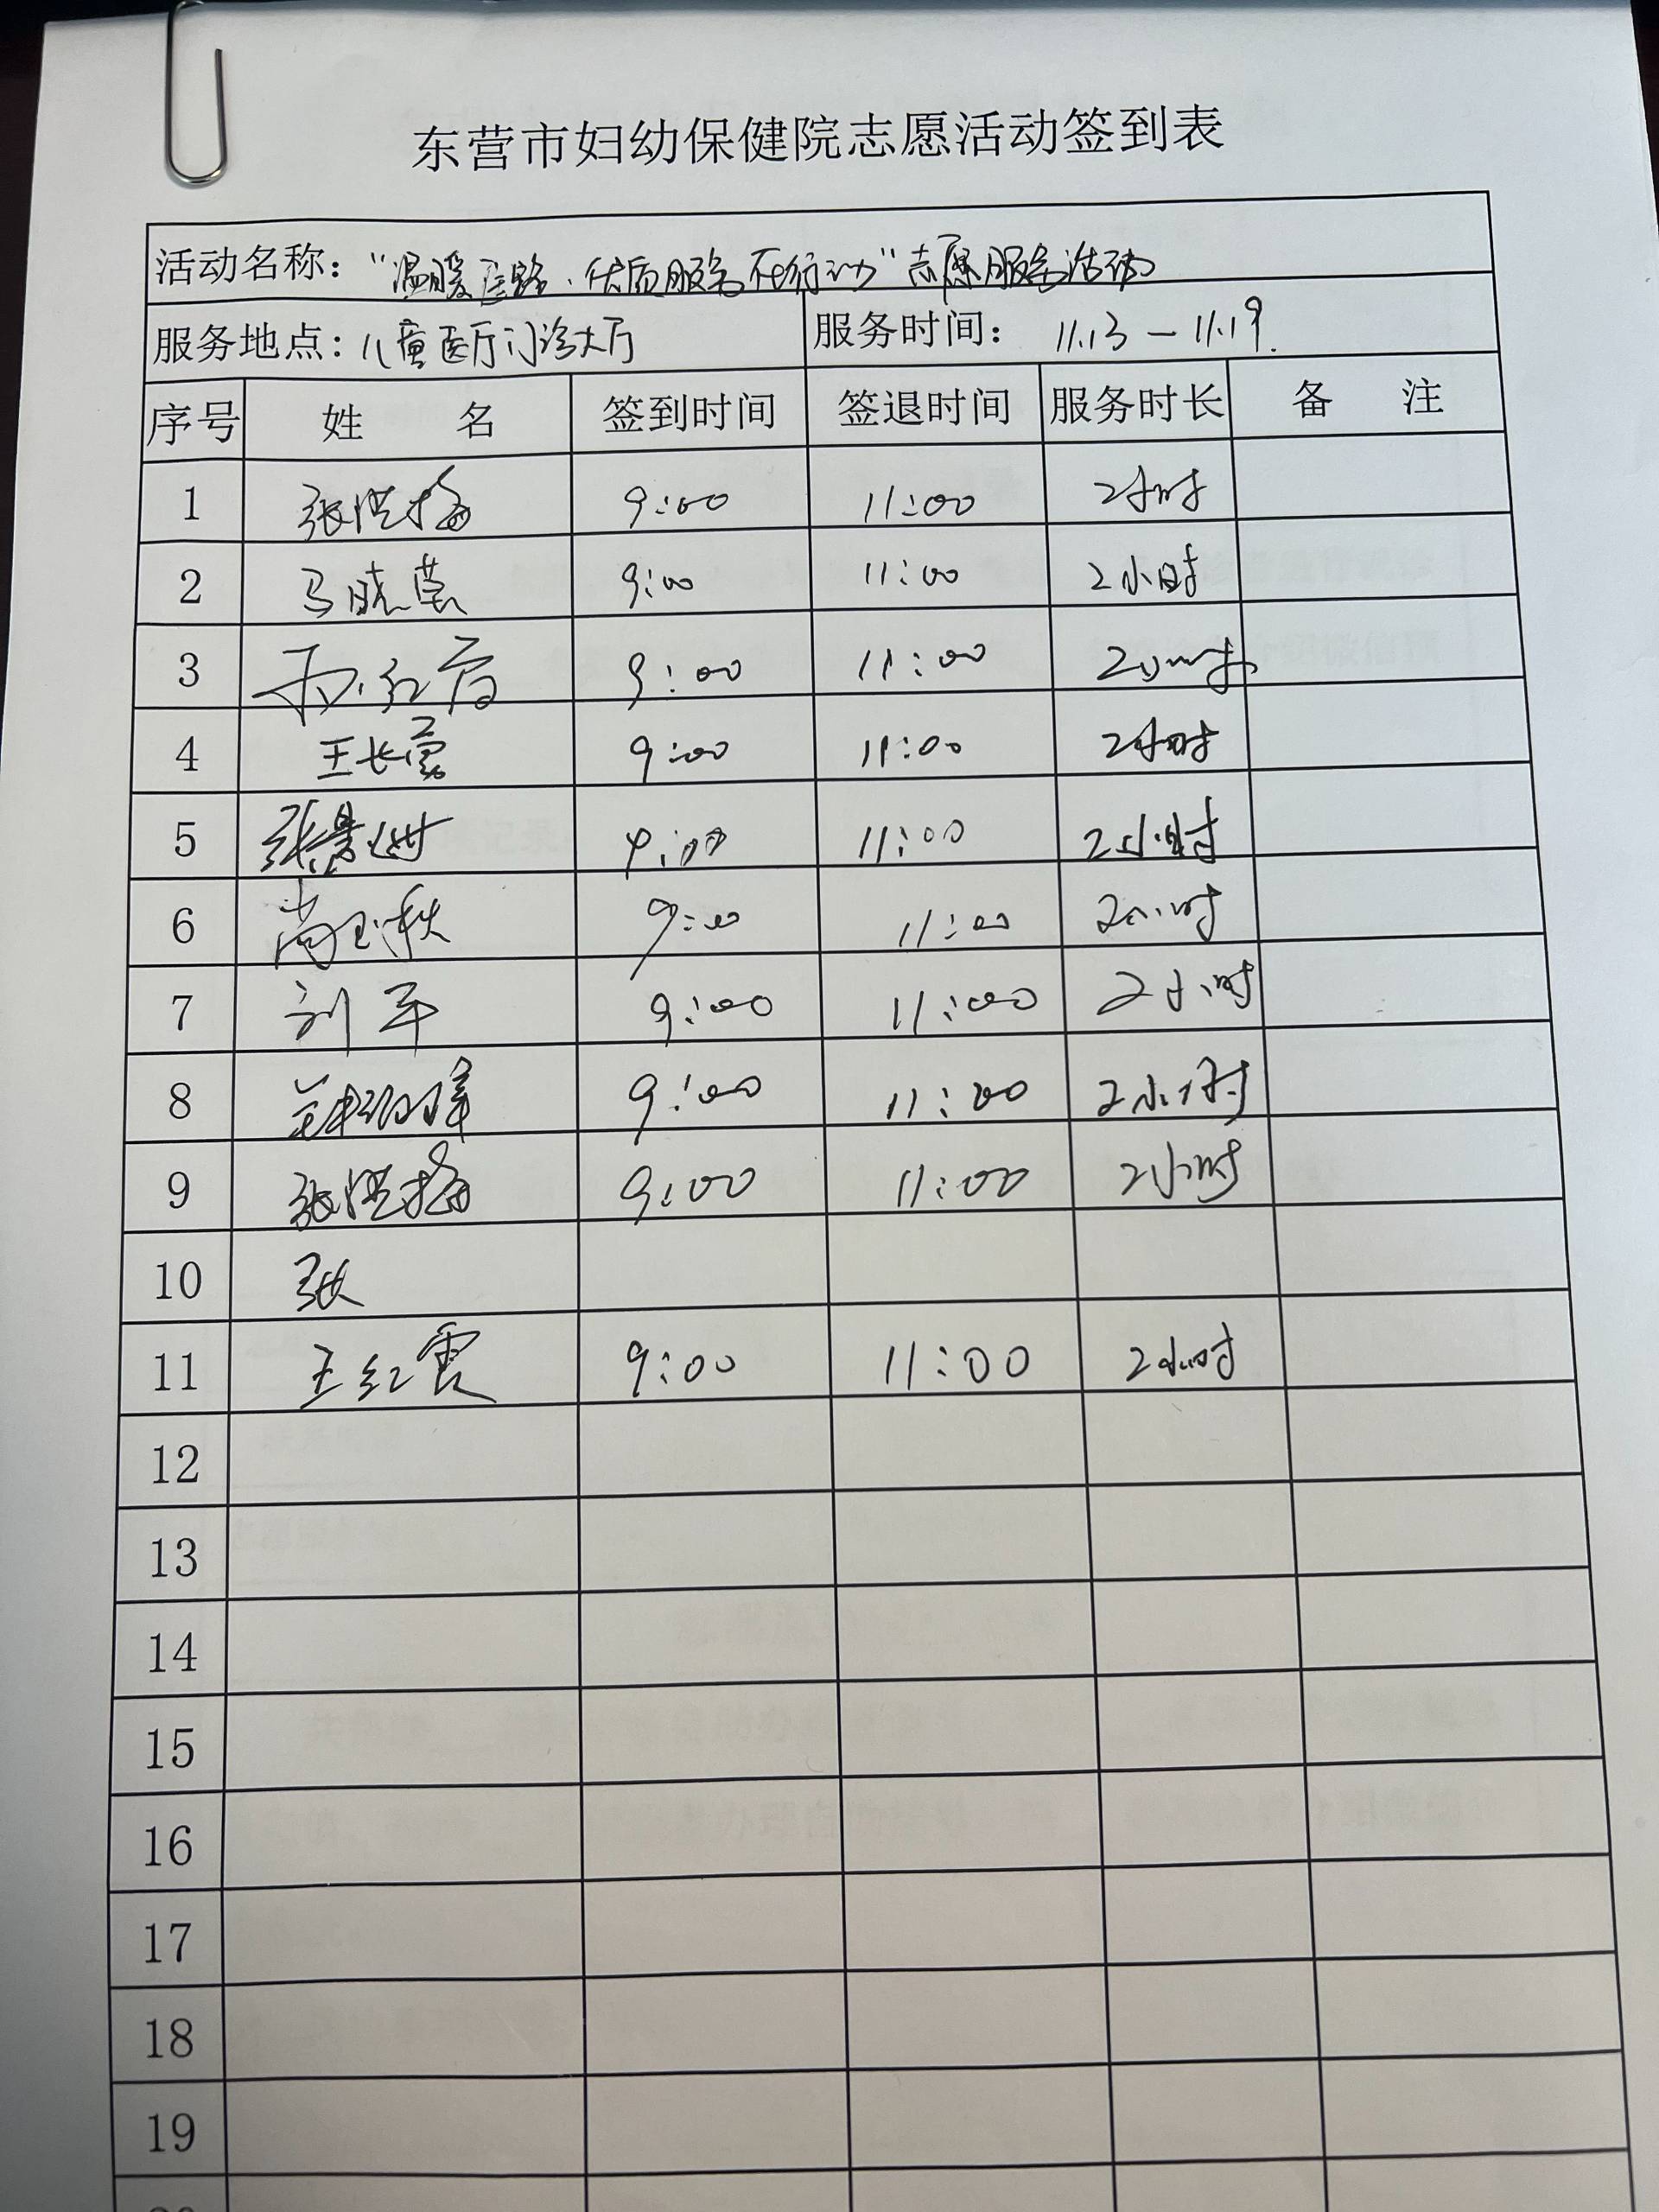 东营市妇幼保健院志愿活动签到表
活动名称：“温暖医路·优质服务在行动”志愿服务活动
服务地点：儿童医厅门诊大厅 服务时间： 11.13 — 11.19.
序号 姓 名 签到时间 签退时间 服务时长 备 注
1 张洪梅 9:00 11:00 2小时
2 马晓莹 9:00 11:00 2小时
3 9:00 11:00 2小时
4 王长 9:00 11:00 2小时
5 张景 9:00 11:00 2小时
6 尚玉秋 9:00 11:00 2小时
7 刘军 9:00 11:00 2小时
8 9:00 11:00 2小时
9 张洪梅 9:00 11:00 2小时
10 张
11 王红霞 9:00 11:00 2小时
12
13
14
15
16
17
18
19